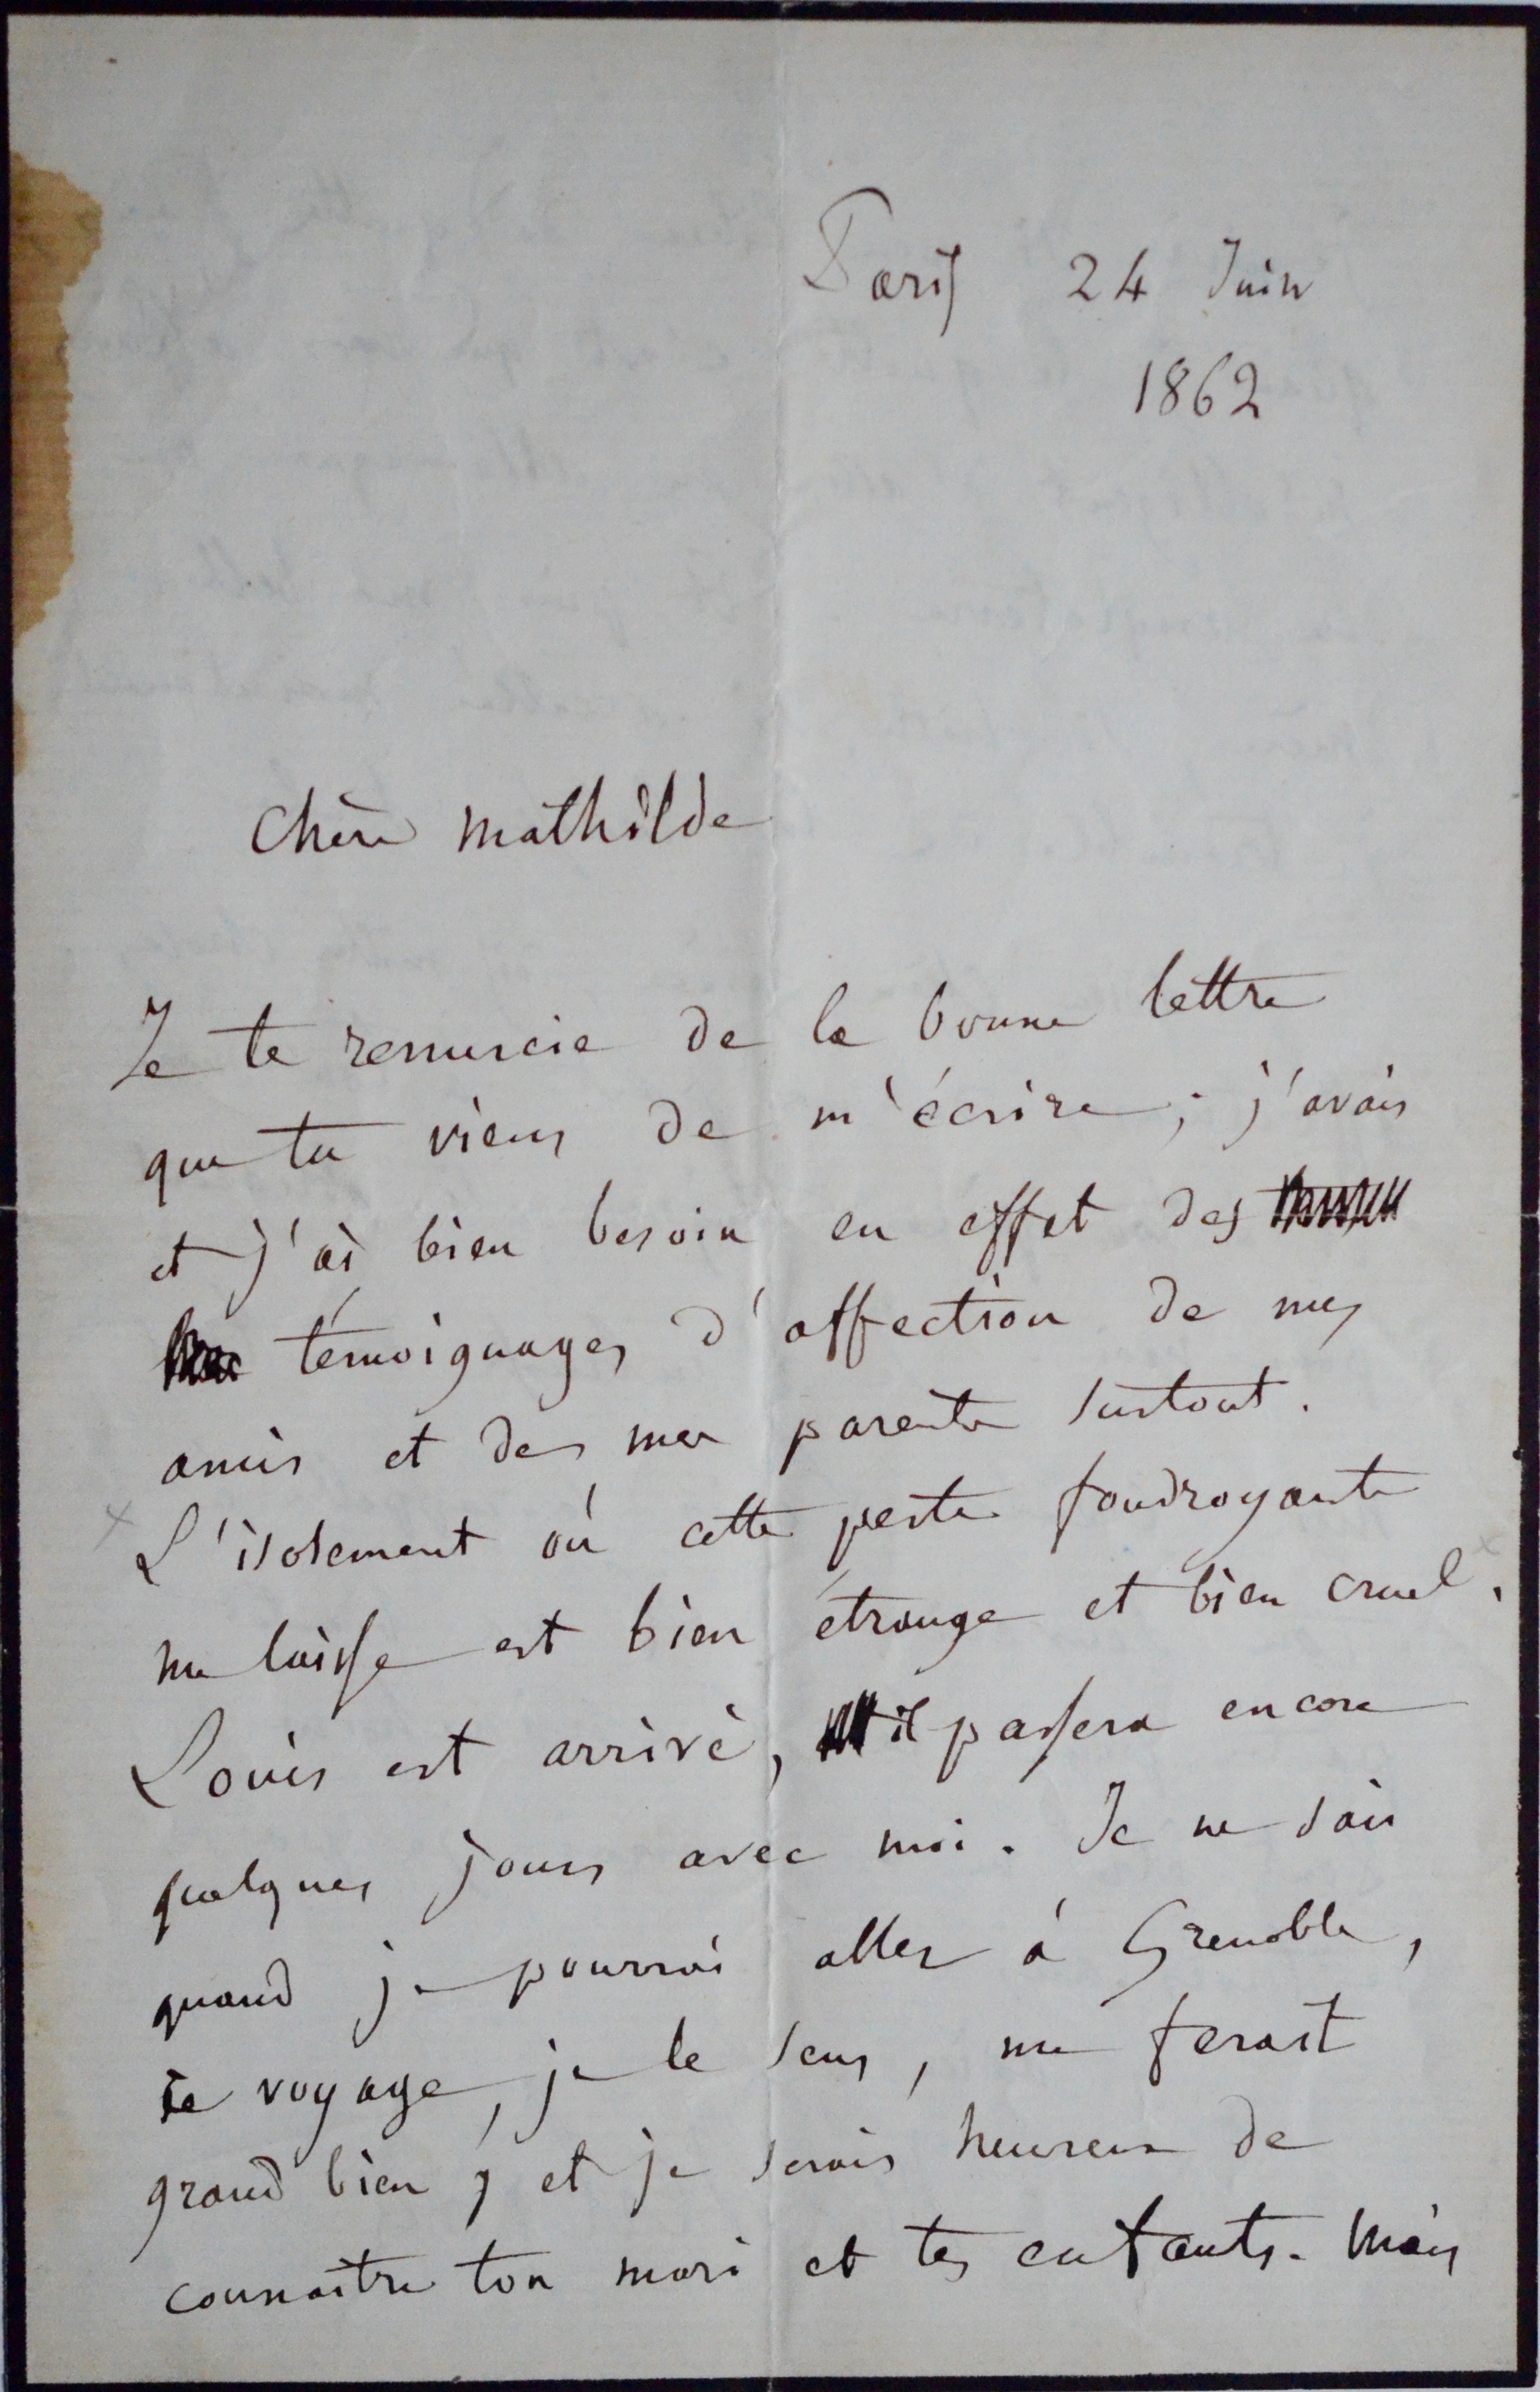 Paris 24 Juin
1862
Chère Mathilde
Je te remercie de la bonne lettre
que tu viens de m'écrire; j'avais
et j'ai bien besoin en effet des
témoignages d'affection de mes
amis et de mes parents surtout.
L'isolement où cette perte foudroyante
me laisse est bien étrange et bien cruel.
Louis est arrivé, il passera encore
quelques jours avec moi. Je ne sais
quand je pourrai aller à Grenoble,
ce voyage, je le sens, me ferait
grand bien, et je serais heureux de
connaître ton mari et tes enfants. Mais